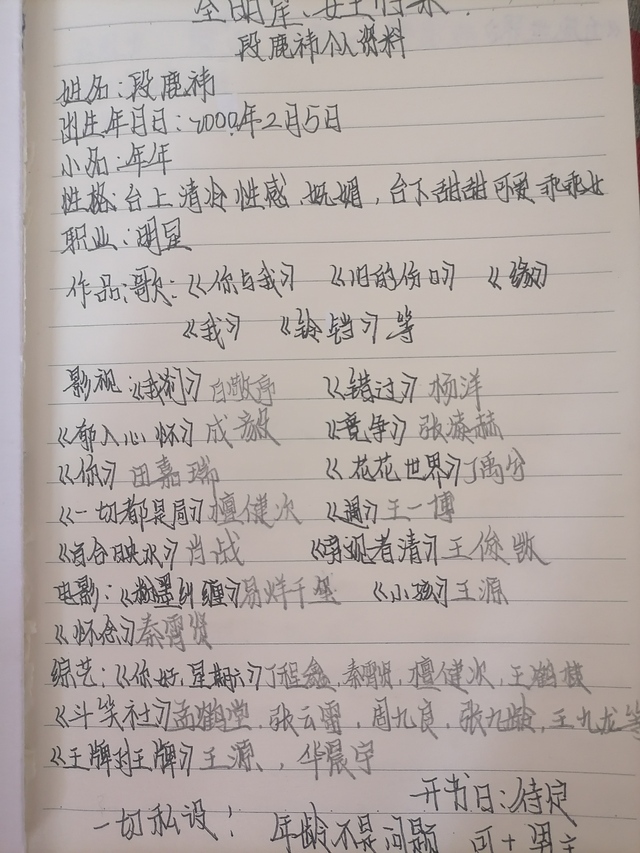 全明星、女王归来
段鹿祎个人资料
姓名:段鹿祎
出生年月日:2000年2月5日
小名:年年
性格:台上清冷性感、妩媚,台下甜甜可爱乖乖女
职业:明星
作品:歌:《你与我》 《旧的伤口》 《缘》
《我》 《铃铛》等
影视:《我们》白敬亭 《错过》杨洋
《郁入心怀》成毅 《竞争》张凌赫
《你》田嘉瑞 《花花世界》丁禹兮
《一切都是局》檀健次 王一博
《百合映水》肖战 《旁观者清》王俊凯
电影:纠缠》易烊千玺 《小孩》王源
《怀念》秦霄贤
综艺:《你好,星期六》丁程鑫,秦霄贤,檀健次,王鹤棣
《斗笑社》孟鹤堂,张云雷,周九良,张九龄,王九龙等
《王牌对王牌》王源、,华晨宇
开书日:待定
一切私设! 年龄不是问题 可+男主